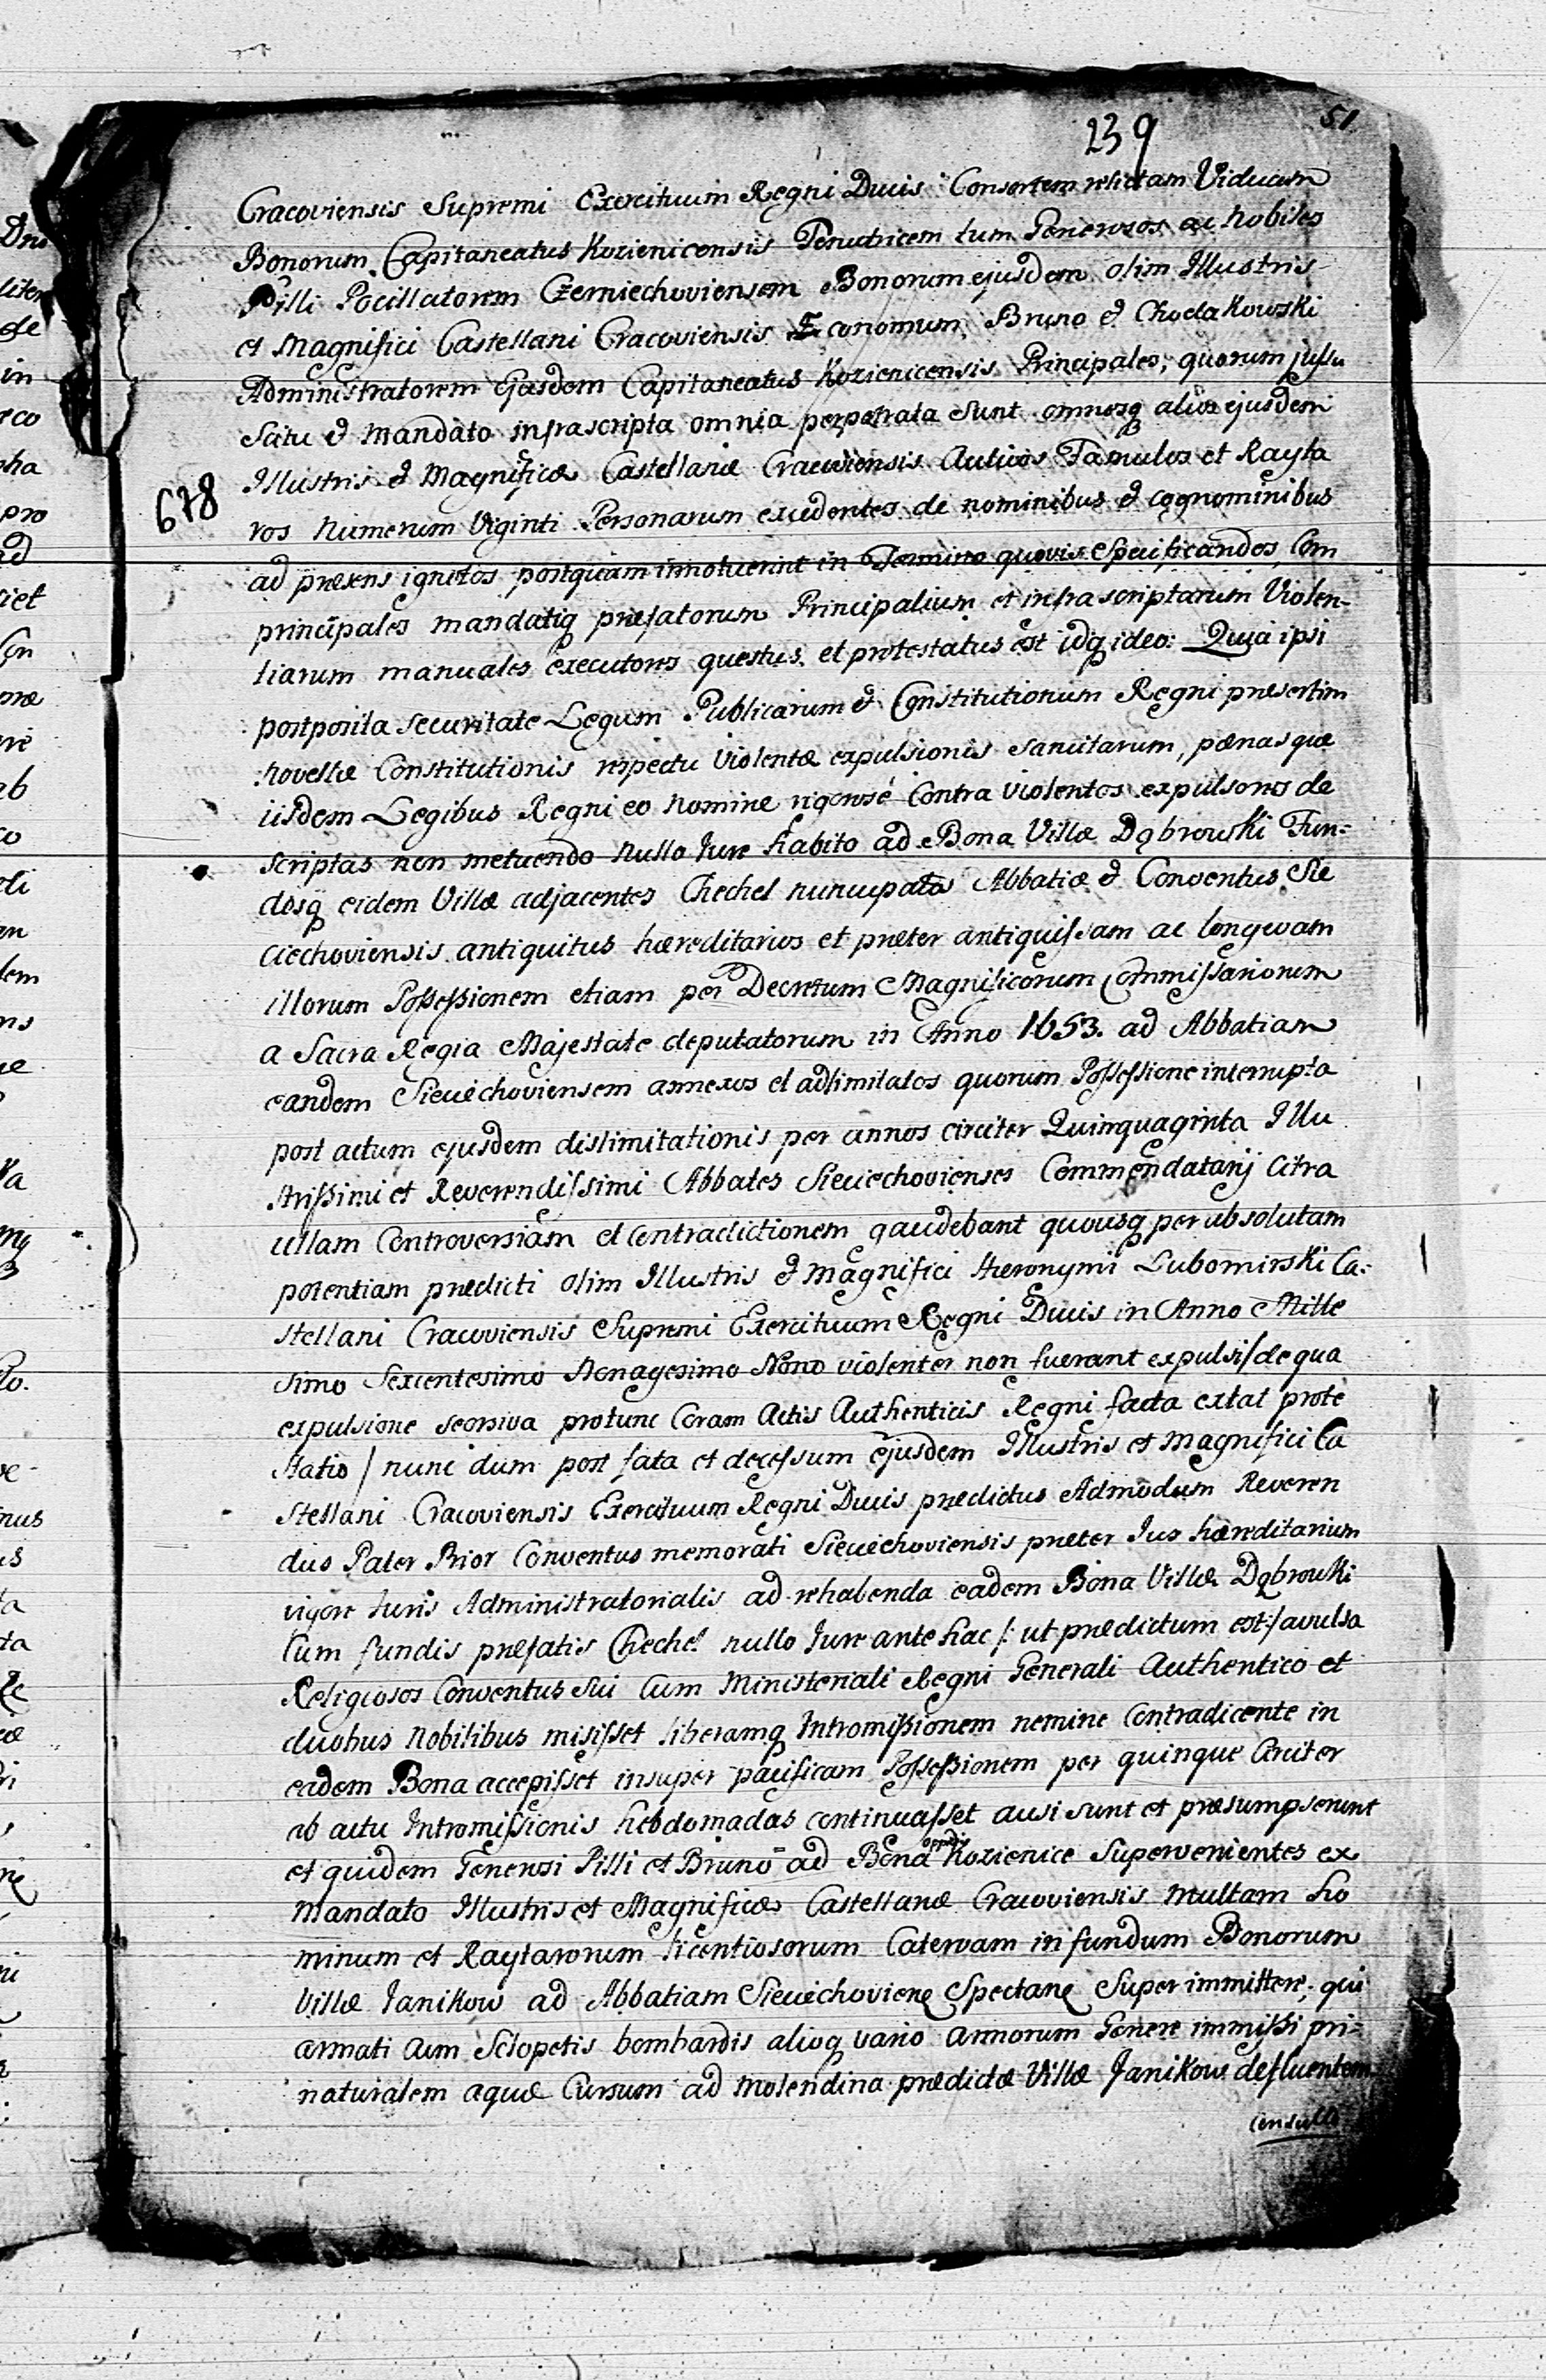 239
51
Cracoviensis Supremi Exercituum Regni Ducis Consortem relictam Viduam
Bonorum Capitaneatus Kozienicensis Tenutricem tum Generosos ac Nobiles
Pilli Pocillatorem Czerniechoviensem Bonorum ejusdem olim Illustris
et Magnifici Castellani Cracoviensis Economum Bruno & Chodakowski
Administratorem Ejusdem Capitaneatus Kozienicensis Principales, quorum jussu
Satu & mandato infrascripta omnia perpetrata sunt omnesq alios ejusdem
Illustris & Magnificæ Castellanæ Cracoviensis Aulicos Famulos et Rayta
678
ros Numerum Viginti Personarum excedentes de nominibus & cognominibus
ad præsens ignotos postquam innotuerint in Termino quovis specificandos, Com
principales mandatiq præfatorum Principalium et infrascriptarum Violen-
tiarum manuales executores questus et protestatus est idq ideo: Quia ipsi
postposita securitate Legum Publicarum & Constitutionum Regni præsertim
novellæ Constitutionis respectu violentæ expulsionis sancitarum, pænas quæ
iisdem Legibus Regni eo Nomine rigorose contra violentos expulsores de
scriptas non metuendo Nullo Jure habito ad Bona Villæ Dąbrowki Fun-
dosq eidem Villæ adjacentes Chechel nuncupatos Abbatiæ & Conventus Sie
ciechoviensis antiquitus hæreditarios et præter antiquissam ac longævam
illorum Possessionem etiam per Decretum Magnificorum Commissariorum
a Sacra Regia Majestate deputatorum in Anno 1653. ad Abbatiam
eandem Sieciechoviensem annexos et adlimitatos quorum Possessione interrupta
post actum ejusdem dislimitationis per annos circiter Quinquaginta Illu
strissimi et Reverendissimi Abbates Sieciechovienses Commendatarij Citra
ullam Controversiam et Contradictionem gaudebant quousq per absolutam
potentiam prædicti olim Illustris & Magnifici Hieronymi Lubomirski Ca-
stellani Cracoviensis Supremi Exercituum Regni Ducis in Anno Mille
simo Sexcentesimo Nonagesimo Nono violenter non fuerant expulsi /de qua
expulsione seorsiva protunc Coram Actis Authenticis Regni facta extat prote
statio / nunc dum post fata et decessum ejusdem Illustris et Magnifici Ca
stellani Cracoviensis Exercituum Regni Ducis prædictus Admodum Reveren
dus Pater Prior Conventus memorati Sieciechoviensis præter Jus hæreditarium
vigore Juris Administratorialis ad rehabenda eadem Bona Villæ Dąbrowki
Cum fundis præfatis Chechel nullo Jure ante hac /: ut prædictum est:/ avulsa
Religiosos Conventus sui Cum Ministeriali Regni Generali Authentico et
duobus Nobilibus misisset liberamq Intromissionem nemine Contradicente in
eadem Bona accepisset insuper pacificam Possessionem per quinque Circiter
ab actu Intromissionis hebdomadas continuasset ausi sunt et præsumpserunt
et quidem Generosi Pilli et Bruno ad Bona oppidi Kozienice Supervenientes ex
mandato Illustris et Magnificæ Castellanæ Cracoviensis Multam ho
minum et Raytarorum licentiosorum Catervam in fundum Bonorum
Villæ Janikow ad Abbatiam Sieciechovien Spectan Super immittere, qui
armati Cum Sclopetis bombardis alioq vario armorum Genere immissi pri-
naturalem aquæ Cursum ad Molendina prædictæ Villæ Janikow defluentem